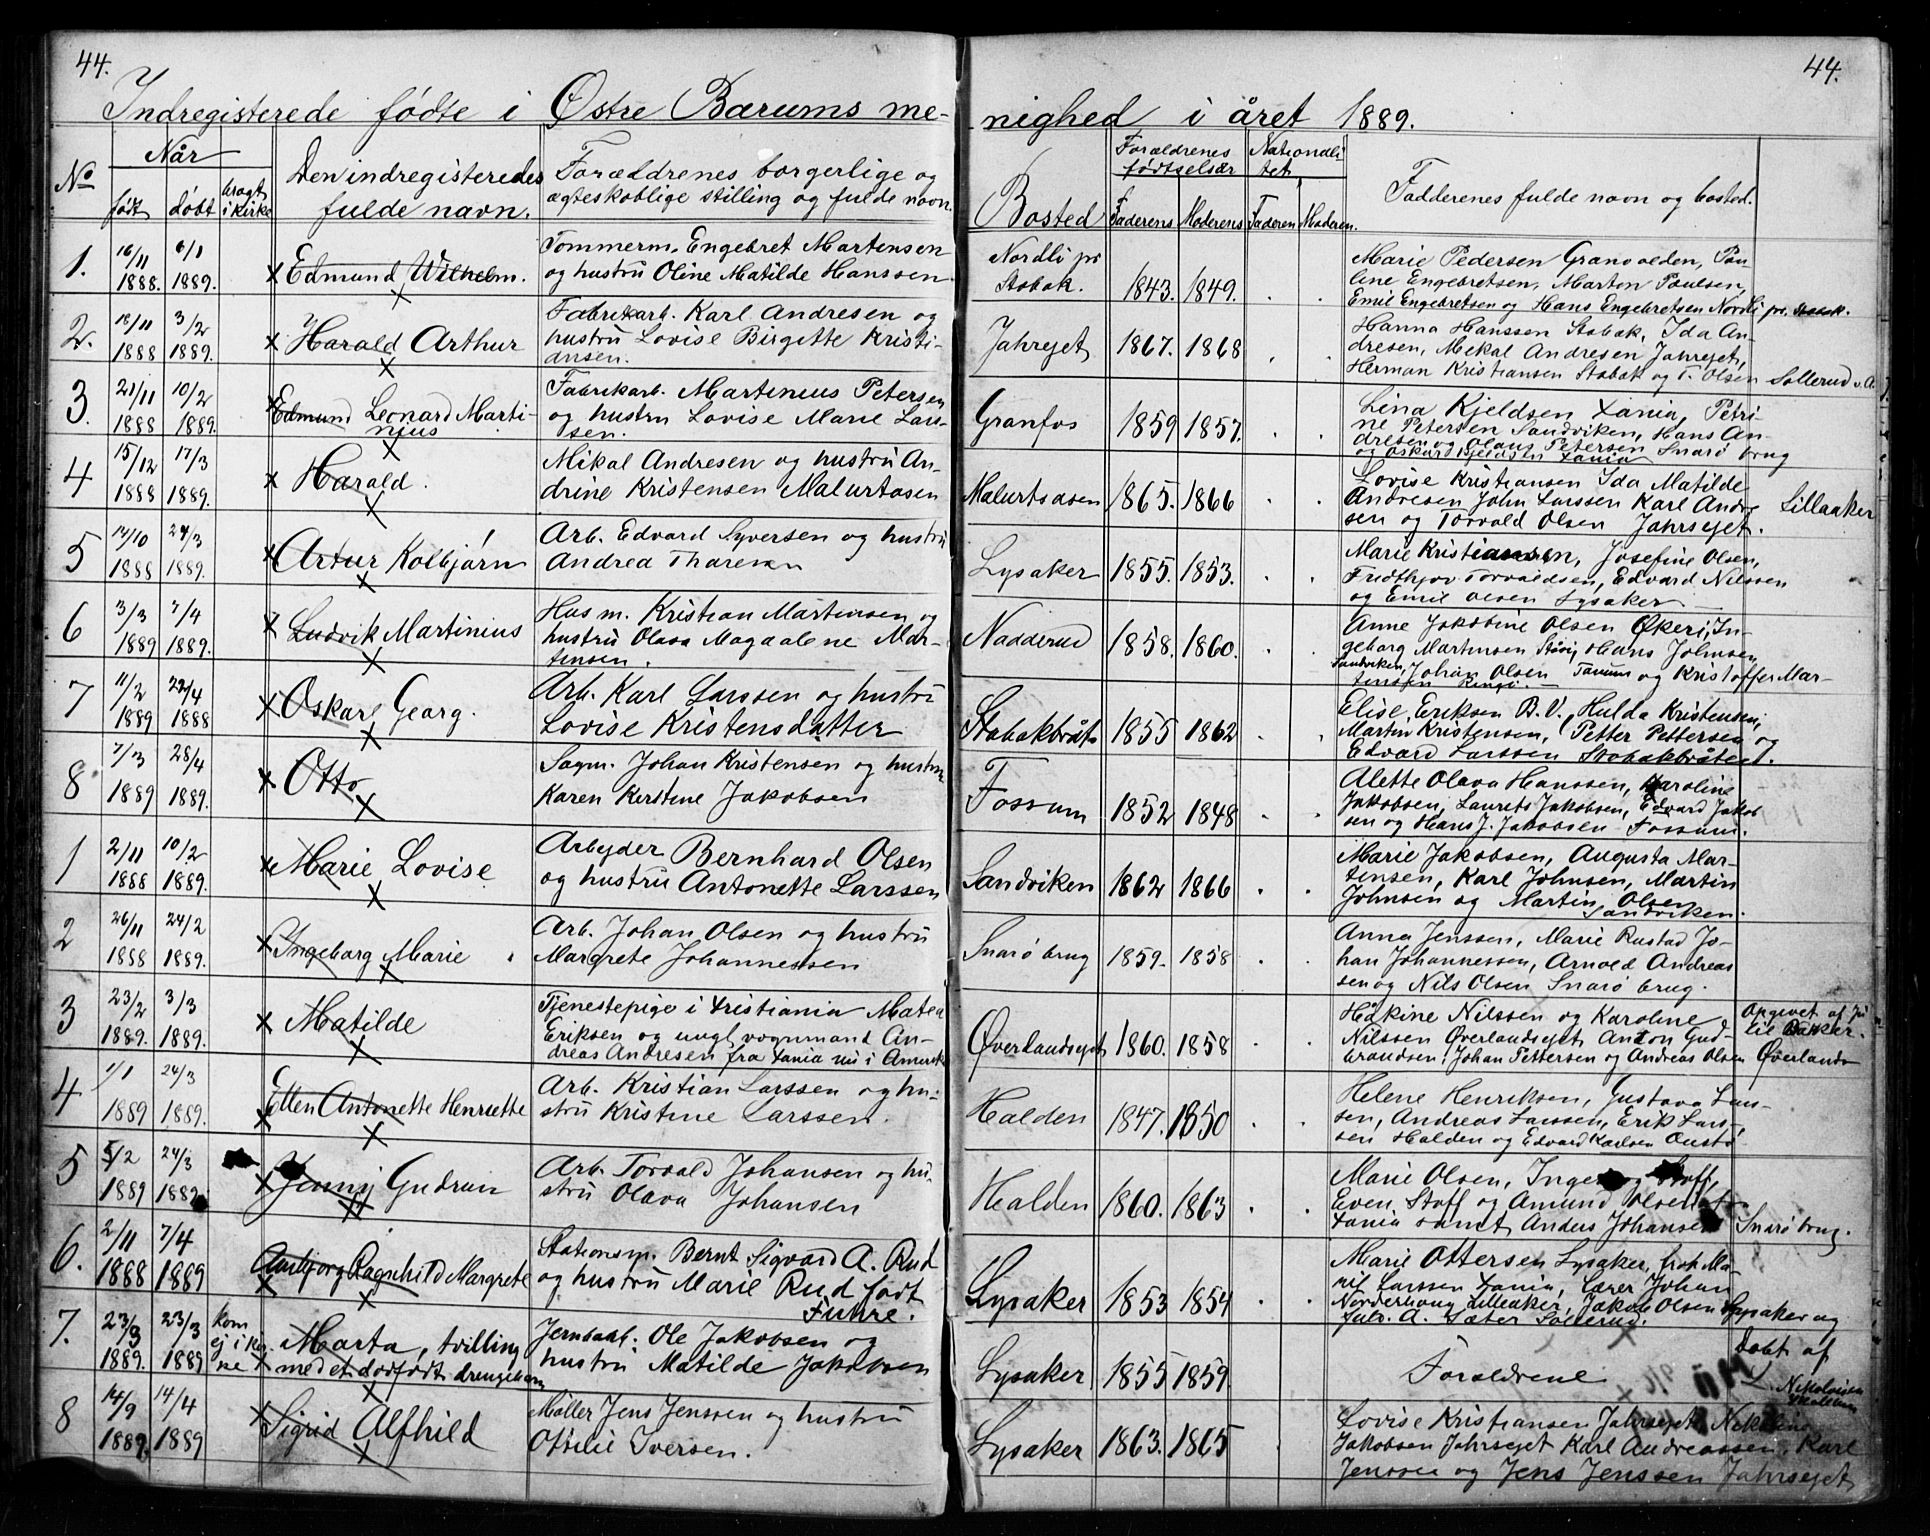 44.
44.
Indregisterede fødte i Østre Bærums me-
nighed i året 1889.
No
Når
født
døbt
bragt i kirke
Den indregisteredes
fulde navn.
Forældrenes borgerlige og
ægteskablige stilling og fulde navn.
Bosted
Forældrenes
fødselsår
Faderens
Moderens
Nationali-
tet
Faderen
Moderen.
Fadderenes fulde navn og bosted.
1.
16/11 1888.
6/1 1889.
Edmund Wilhelm.
Tømmerm. Engebret Martensen
og hustru Oline Matilde Hanssen
Nordli pr
Stabæk.
1843. 1849.
Marie Pedersen Granvolden, Pau-
line Engebretsen, Marton Paulsen,
Emil Engebretsen og Hans Engebretsen Nordli pr. Stabæk.
2.
18/11 1888
3/2 1889.
Harald Arthur
Fabrikarb. Karl Andresen og
hustru Lovise Birgitte Kristi-
ansen.
Jahrejet
1867. 1868
Hanna Hanssen Stabæk, Ida An-
dresen, Mikal Andresen Jahrejet,
Herman Kristiansen Stabæk og T. Olsen Sollerud v. A.
3.
21/11 1888
10/2 1889.
Edmund Leonard Marti-
nius
Fabrikarb. Martinius Petersen
og hustru Lovise Marie Lars-
sen.
Granfos
1859 1857.
Lina Kjeldsen Xania, Petri-
ne Petersen Sandviken, Hans An-
dresen og Olaus Petersen Snarø brug
og Oskar Kjeldsen Xania
4
15/12 1888
17/3 1889.
Harald.
Mikal Andresen og hustru An-
drine Kristensen Malurtåsen
Malurtsåsen
1865. 1866
Lovise Kristiansen Ida Matilde
Andresen John Larssen Karl Andre-
sen og Torvald Olsen Jahrsejet.
Lillaaker
5
14/10 1888
24/3 1889.
Artur Kolbjørn
Arb. Edvard Syversen og hustru
Andrea Tharesen
Lysaker
1855. 1853.
Marie Kristiansen, Josefine Olsen,
Fridthjov Torvaldsen, Edvard Nilssen
og Emil Olsen Lysaker
6
3/3 1889
7/4 1889.
Ludvik Martinius
Husm. Kristian Martinsen og
hustru Olava Magdalene Mar-
tensen.
Nadderud
1858. 1860.
Anne Jakobine Olsen Økeri, In-
geborg Martensen Støvi, Hans Johnsen
Sandviken, Johan Olsen Tanum og Kristoffer Mar-
tensen Ringi
7
11/2 1889
22/4 1888
Oskar Georg.
Arb. Karl Larssen og hustru
Lovise Kristensdatter
Stabækbråt
1855 1862
Elise Eriksen B.V., Hulda Kristensen,
Martin Kristensen, Petter Pettersen og
Edvard Larssen Stabækbråtet.
8
7/3 1889
28/4 1889.
Otto
Sagm. Johan Kristensen og hustru
Karen Kerstine Jakobsen
Fossum
1852 1848
Alette Olava Hanssen, Karoline
Jakobsen, Laurits Jakobsen, Edvard Jakob
sen og Hans J. Jakobsen Fossum.
1
2/11 1888
10/2 1889.
Marie Lovise
Arbejder Bernhard Olsen
og hustru Antonette Larssen
Sandviken
1862 1866
Marie Jakobsen, Augusta Mar-
tensen, Karl Johnsen, Martin
Johnsen og Martin Olsen
Sandviken.
2
26/11 1888
24/2 1889.
Ingeborg Marie
Arb. Johan Olsen og hustru
Margrete Johannessen
Snarø brug
1859. 1858
Anna Jenssen, Marie Rustad Jo-
han Johannessen, Arnold Andreas
sen og Nils Olsen Snarø brug.
3
23/2 1889.
3/3 1889.
Matilde
Tjenestepige i Kristiania Matea
Eriksen og ungk. vognmand An-
dreas Andresen fra Xania nu i Amerika
Øverlandsejet
1860. 1858
Håkine Nilssen og Karoline
Nilssen Øverlandsejet Anton Gud-
brandsen, Johan Pettersen og Andreas Olsen Øverlands
Opgivet af
til Bakker.
4
1/1 1889
24/3 1889.
Ellen Antonette Henriette
Arb. Kristian Larssen og hu-
stru Kristine Larssen.
Halden
1847. 1850
Helene Henriksen, Gustava Lars-
sen, Andreas Larssen, Erik Lars-
sen Halden og Edvard Karlsen Onstø
5
5/2 1889
24/3 1889
Jenny Gudrun
Arb. Torvald Johansen og hu-
stru Olava Johansen
Halden
1860. 1863
Marie Olsen, Ingeborg Stoff,
Even Stoff og Amund Olsen af
Xania samt Anders Johansen Snarø brug.
6.
2/11 1888
7/4 1889
Aasbjørg Ragnhild Margrete
Stationsm. Bernt Sigvard A. Rud
og hustru Marie Rud født
Fuhre.
Lysaker
1853 1854
Marie Ottersen Lysaker, frøk. Ma-
rie Larssen Xania, Lærer Johan
Norderhaug Lilleaker, Jakob Olsen Lysaker og
A. Sæter Sollerud.
7.
23/3 1889.
23/3 1889
kom
ej i kir-
ne
Marta, tvilling
med et dødfødt drengebarn
Jernbarb. Ole Jakobsen og
hustru Matilde Jakobsen
Lysaker
1855 1859
Forældrene
Døbt af
8
14/9 1889.
14/4 1889
Sigrid Alfhild
Møller Jens Jenssen og hustru
Ottilie Iversen.
Lysaker
1863. 1865
Lovise Kristiansen Jahrsejet Nikoline
Jakobsen Jahrsejet Karl Andreassen, Karl
Jenssen og Jens Jenssen Jahrsejet